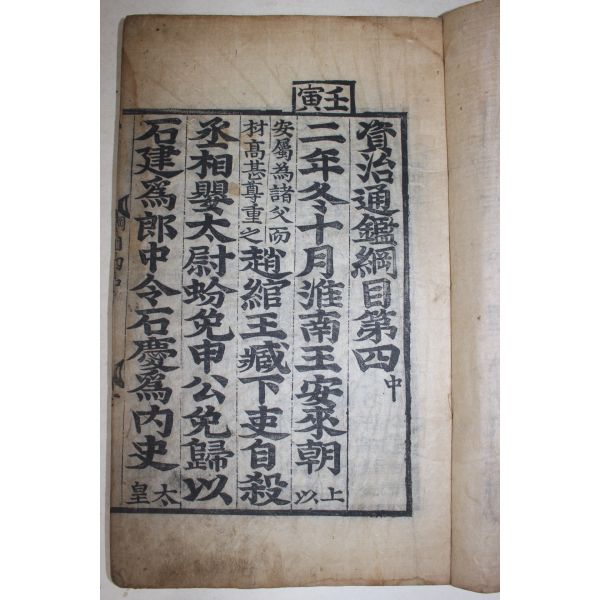 壬寅
資治通鑑綱目第四中
二年冬十月淮南王安來朝上以
安屬為諸父而材高甚尊重之趙綰王臧下吏自殺
丞相嬰太尉蚡免申公免歸以
石建爲郎中令石慶爲内史太皇